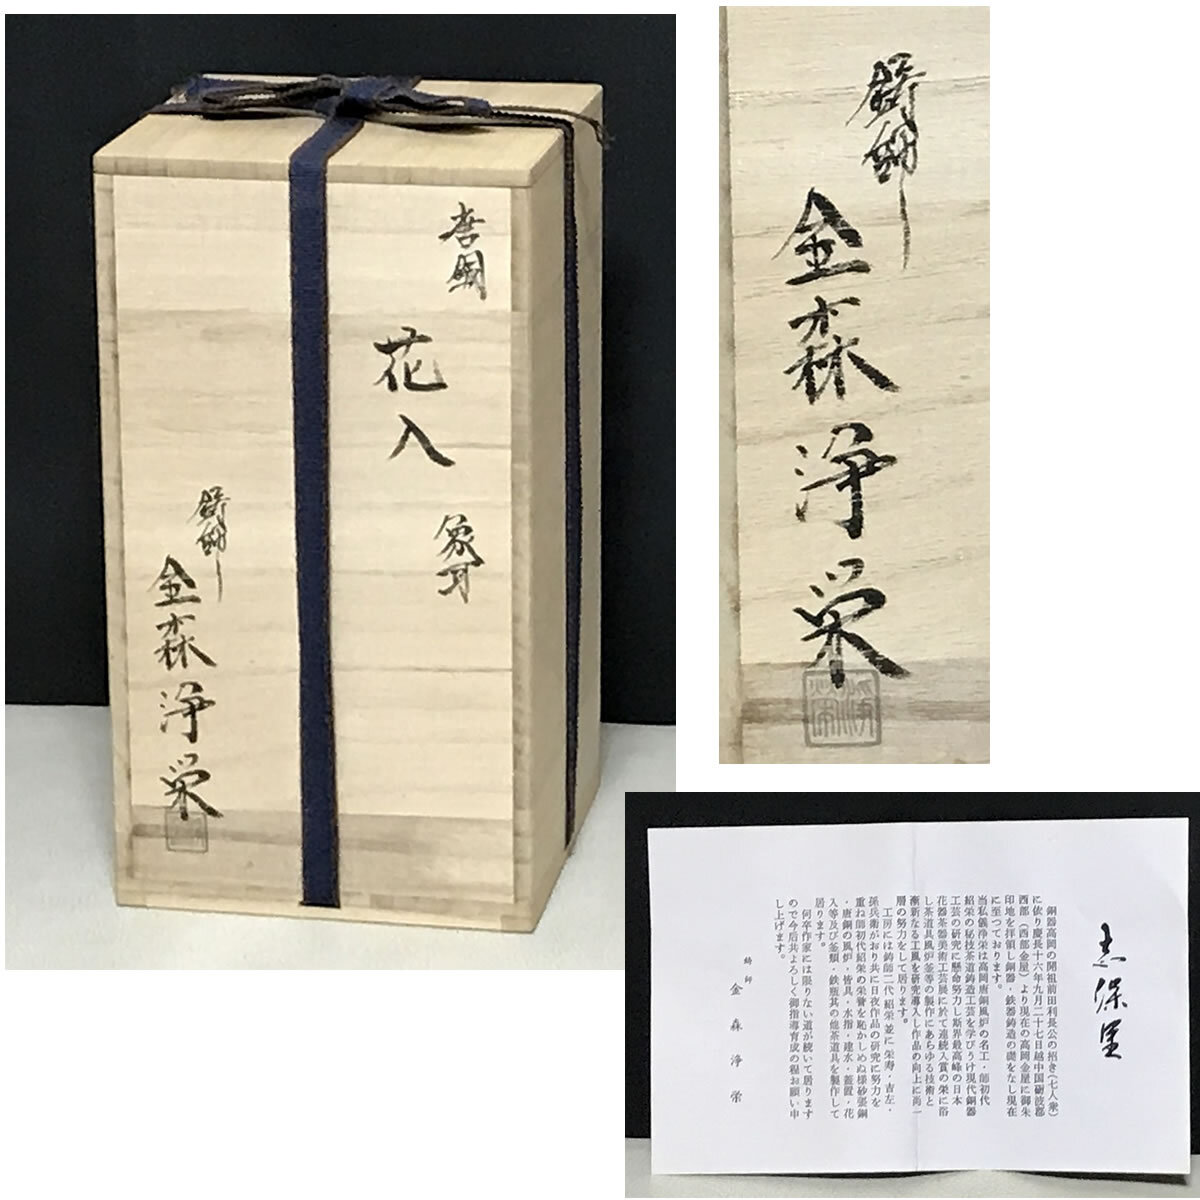 唐銅
花入
象耳
鋳師
金森浄栄
鋳師
金森浄栄
浄栄
志保里
銅器高岡の開祖前田利長公の招き(七人衆)
に依り慶長十六年九月二十七日越中国砺波郡
西部(西部金屋)より現在の高岡金屋に御朱
印地を拝領し銅器・鉄器鋳造の礎をなし現在
に至つております。
当私儀浄栄は高岡唐銅風炉の名工・師初代
紹栄の秘技茶道鋳造工芸を学びうけ現代銅器
工芸の研究に懸命努力し斯界最高峰の日本
花器茶器美術工芸展に於て連続入賞の栄に浴
し茶道具風炉釜等の製作にあらゆる技術と
漸新なる工風を研究導入し作品の向上に尚一
層の努力をして居ります。
工房には鋳師二代 紹栄 並に 栄寿・吉左・
孫兵衛がおり共に日夜作品の研究に努力を
重ね師初代紹栄の栄誉を恥かしめぬ様砂張銅
・唐銅の風炉・皆具・水指・建水・蓋置・花
入等及び釜類・鉄瓶其の他茶道具を製作して
居ります。
何卒作家には限りない道が続いて居ります
ので今后共よろしく御指導育成の程お願い申
し上げます。
鋳師
金森浄栄